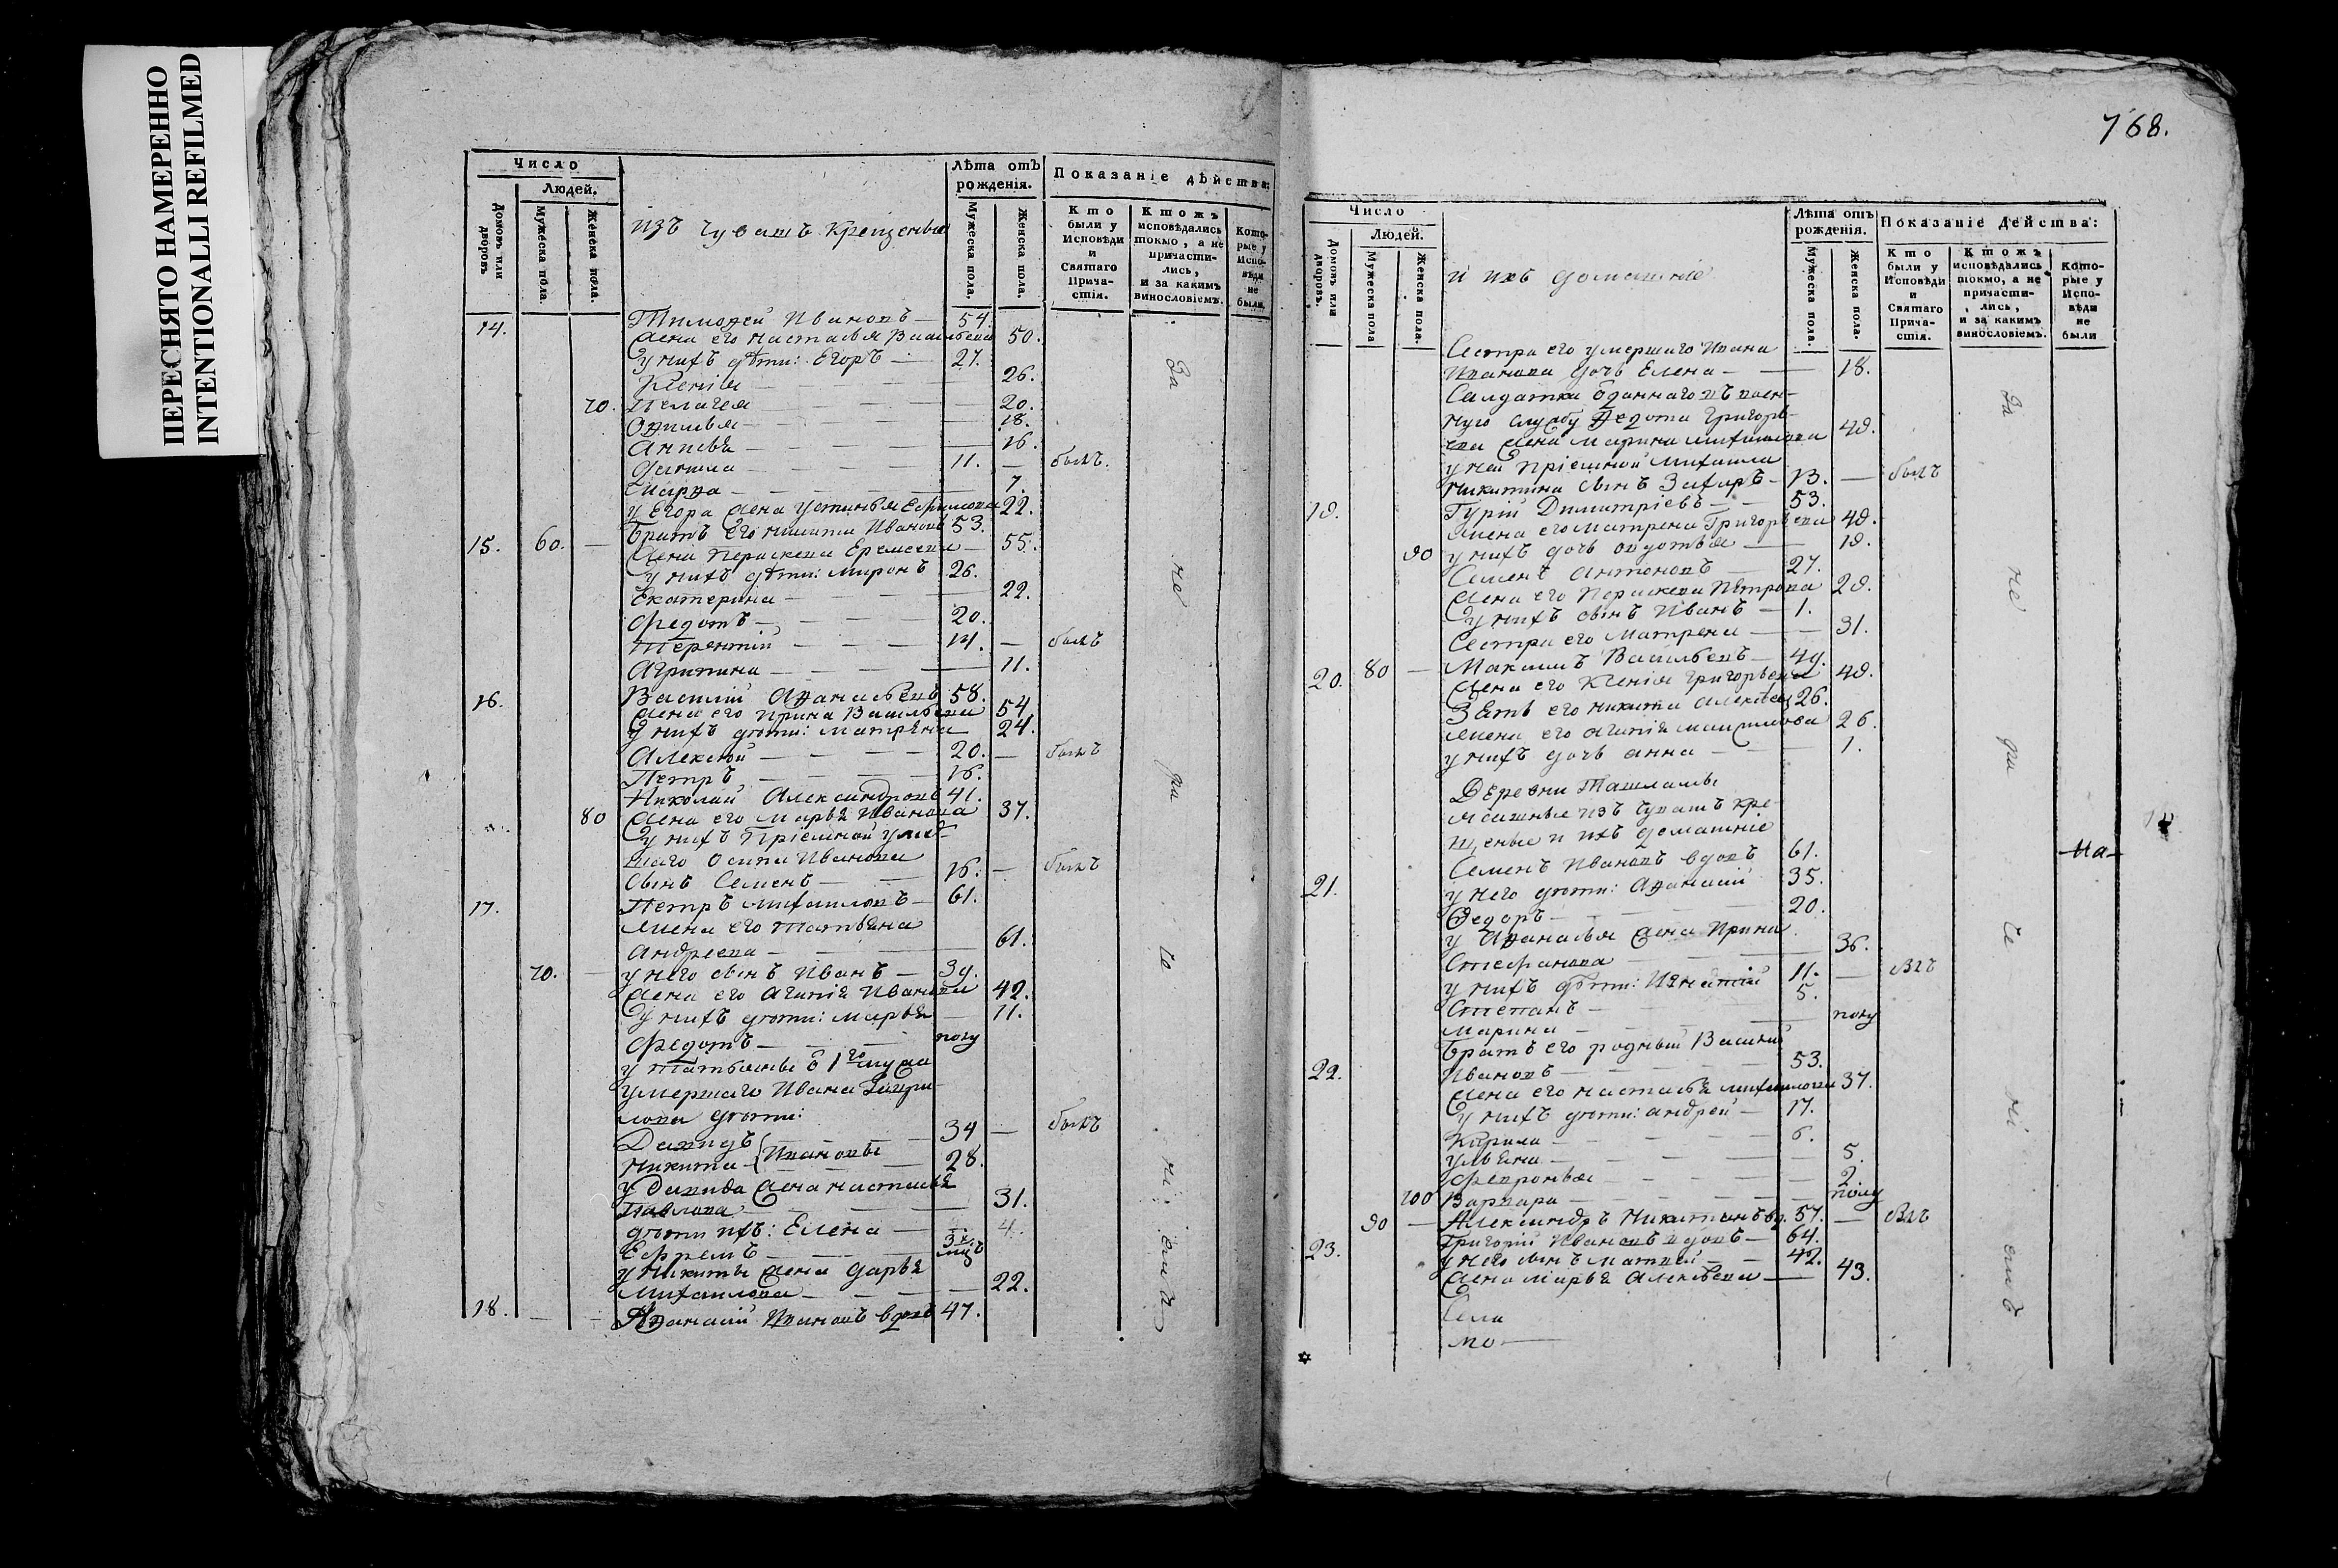 ПЕРЕСНЯТО НАМЕРЕННО
INTENTIONALLI REFILMED
Число
Людей.
Домовъ или дворовъ
Мужеска пола.
Женска пола.
изъ Чувашъ Крещеныя
Лѣта отъ рожденія.
Мужеска пола,
Женска пола.
Показаніе дѣйства:
Кто были у Исповѣди и Святаго Прича-стія.
Ктожъ исповѣдались токмо, а не причасти-лись, и за какимъ винословіемъ.
Кото-рые у Испо-вѣди не были.
14. Тимоѳей Ивановъ — 54.
Жена его Настасья Васильева 50.
у нихъ дѣти: Егоръ — 27.
Ксенія — 26.
70. Пелагея — 20.
— 18.
— 16.
Данила — 11. — былъ.
Марѳа — 7.
у Егора жена Устинья Ефимова 22.
Братъ его Никита Ивановъ 53.
15. 60. — Жена Параскева Еремеева — 55.
у нихъ дѣти: Миронъ 26.
Екатерина — 22.
Федотъ — 20.
Терентій — 14. — былъ
Агрипина — 11.
16. Василій Аѳанасьевъ 58.
Жена его Ирина Васильева 54
у нихъ дѣти: Матрена 24.
Алексѣй — 20. — былъ
Петръ — 16.
Николай Александровъ 41.
80 Жена его Марья Иванова 37.
у нихъ Пріемной умер-
шаго Осипа Иванова
сынъ Семенъ — 16. — былъ
17. Петръ Михаиловъ — 61.
Жена его Татьяна
Андреева — 61.
70. — у него сынъ Иванъ — 39.
Жена его Агапія Иванова 42.
у нихъ дѣти: Марья — 11.
Федотъ — полу
у Татьяны 1го мужа
умершаго Ивана
дѣти:
Давидъ — 34 — былъ
Никита { Ивановы — 28.
у Давида жена Настасья
Павлова — 31.
дѣти ихъ: Елена — 4.
Ефремъ — 3х мцъ
у Никиты жена Дарья
Михаилова — 22.
18. — — Аѳанасій Ивановъ вдовъ 47.
За не ра се ні емъ
768.
Число
Людей.
Домовъ или дворовъ.
Мужеска пола
Женска пола.
и ихъ домашніе
Лѣта отъ рожденія.
Мужеска пола.
Женска пола.
Показаніе Действа:
Кто были у Исповѣди и Святаго Прича-стія.
Ктожъ исповѣдались токмо, а не причасти-лись, и за какимъ винословіемъ.
Кото-рые у Испо-вѣди не были
Сестра его умершаго Ивана
Иванова дочь Елена — 18.
Салдатка отданнаго въ воен-
ную службу Федота Григорь-
ева жена Марина Михаилова 49.
у ней пріемной Михаила
Никитина сынъ Захаръ — 13. — былъ
19. Гурій Димитріевъ — 53.
Жена его Матрена Григорьева 49.
90 у нихъ дочь Авдотья — 19.
Семенъ Антоновъ — 27.
Жена его Параскева Петрова 29.
у нихъ сынъ Иванъ — 1.
Сестра его Матрена — 31.
20. 80 — Максимъ Васильевъ — 49.
Жена его Ксенія Григорьева 49.
Зять его Никита Алексѣев 26.
Жена его Агапія Максимова 26.
у нихъ дочь Анна — 1.
Деревни Ташламы
ясашные изъ Чувашъ кре-
щеные и ихъ домашніе
Семенъ Ивановъ вдовъ 61.
21. у него дѣти: Аѳанасій 35.
Ѳедоръ — 20.
у Аѳанасья жена Ирина
Стефанова — 36.
у нихъ дѣти: Игнатій 11. — былъ
Степанъ — 5.
Марина — полу
Братъ его родный Василій
22. Ивановъ — 53.
Жена его Настасья Михаилова 37.
у нихъ дѣти: Андрей — 17.
Кирила — 6.
Ульяна — 5.
Февронья — 2
100 Варвара — полу
90 — Александръ Никитинъ вд. 57. — былъ
23. Григорій Ивановъ вдовъ — 64.
у него сынъ Матвей — 42.
Жена Марья Алексѣева — 43.
Села
За не ра се ні емъ